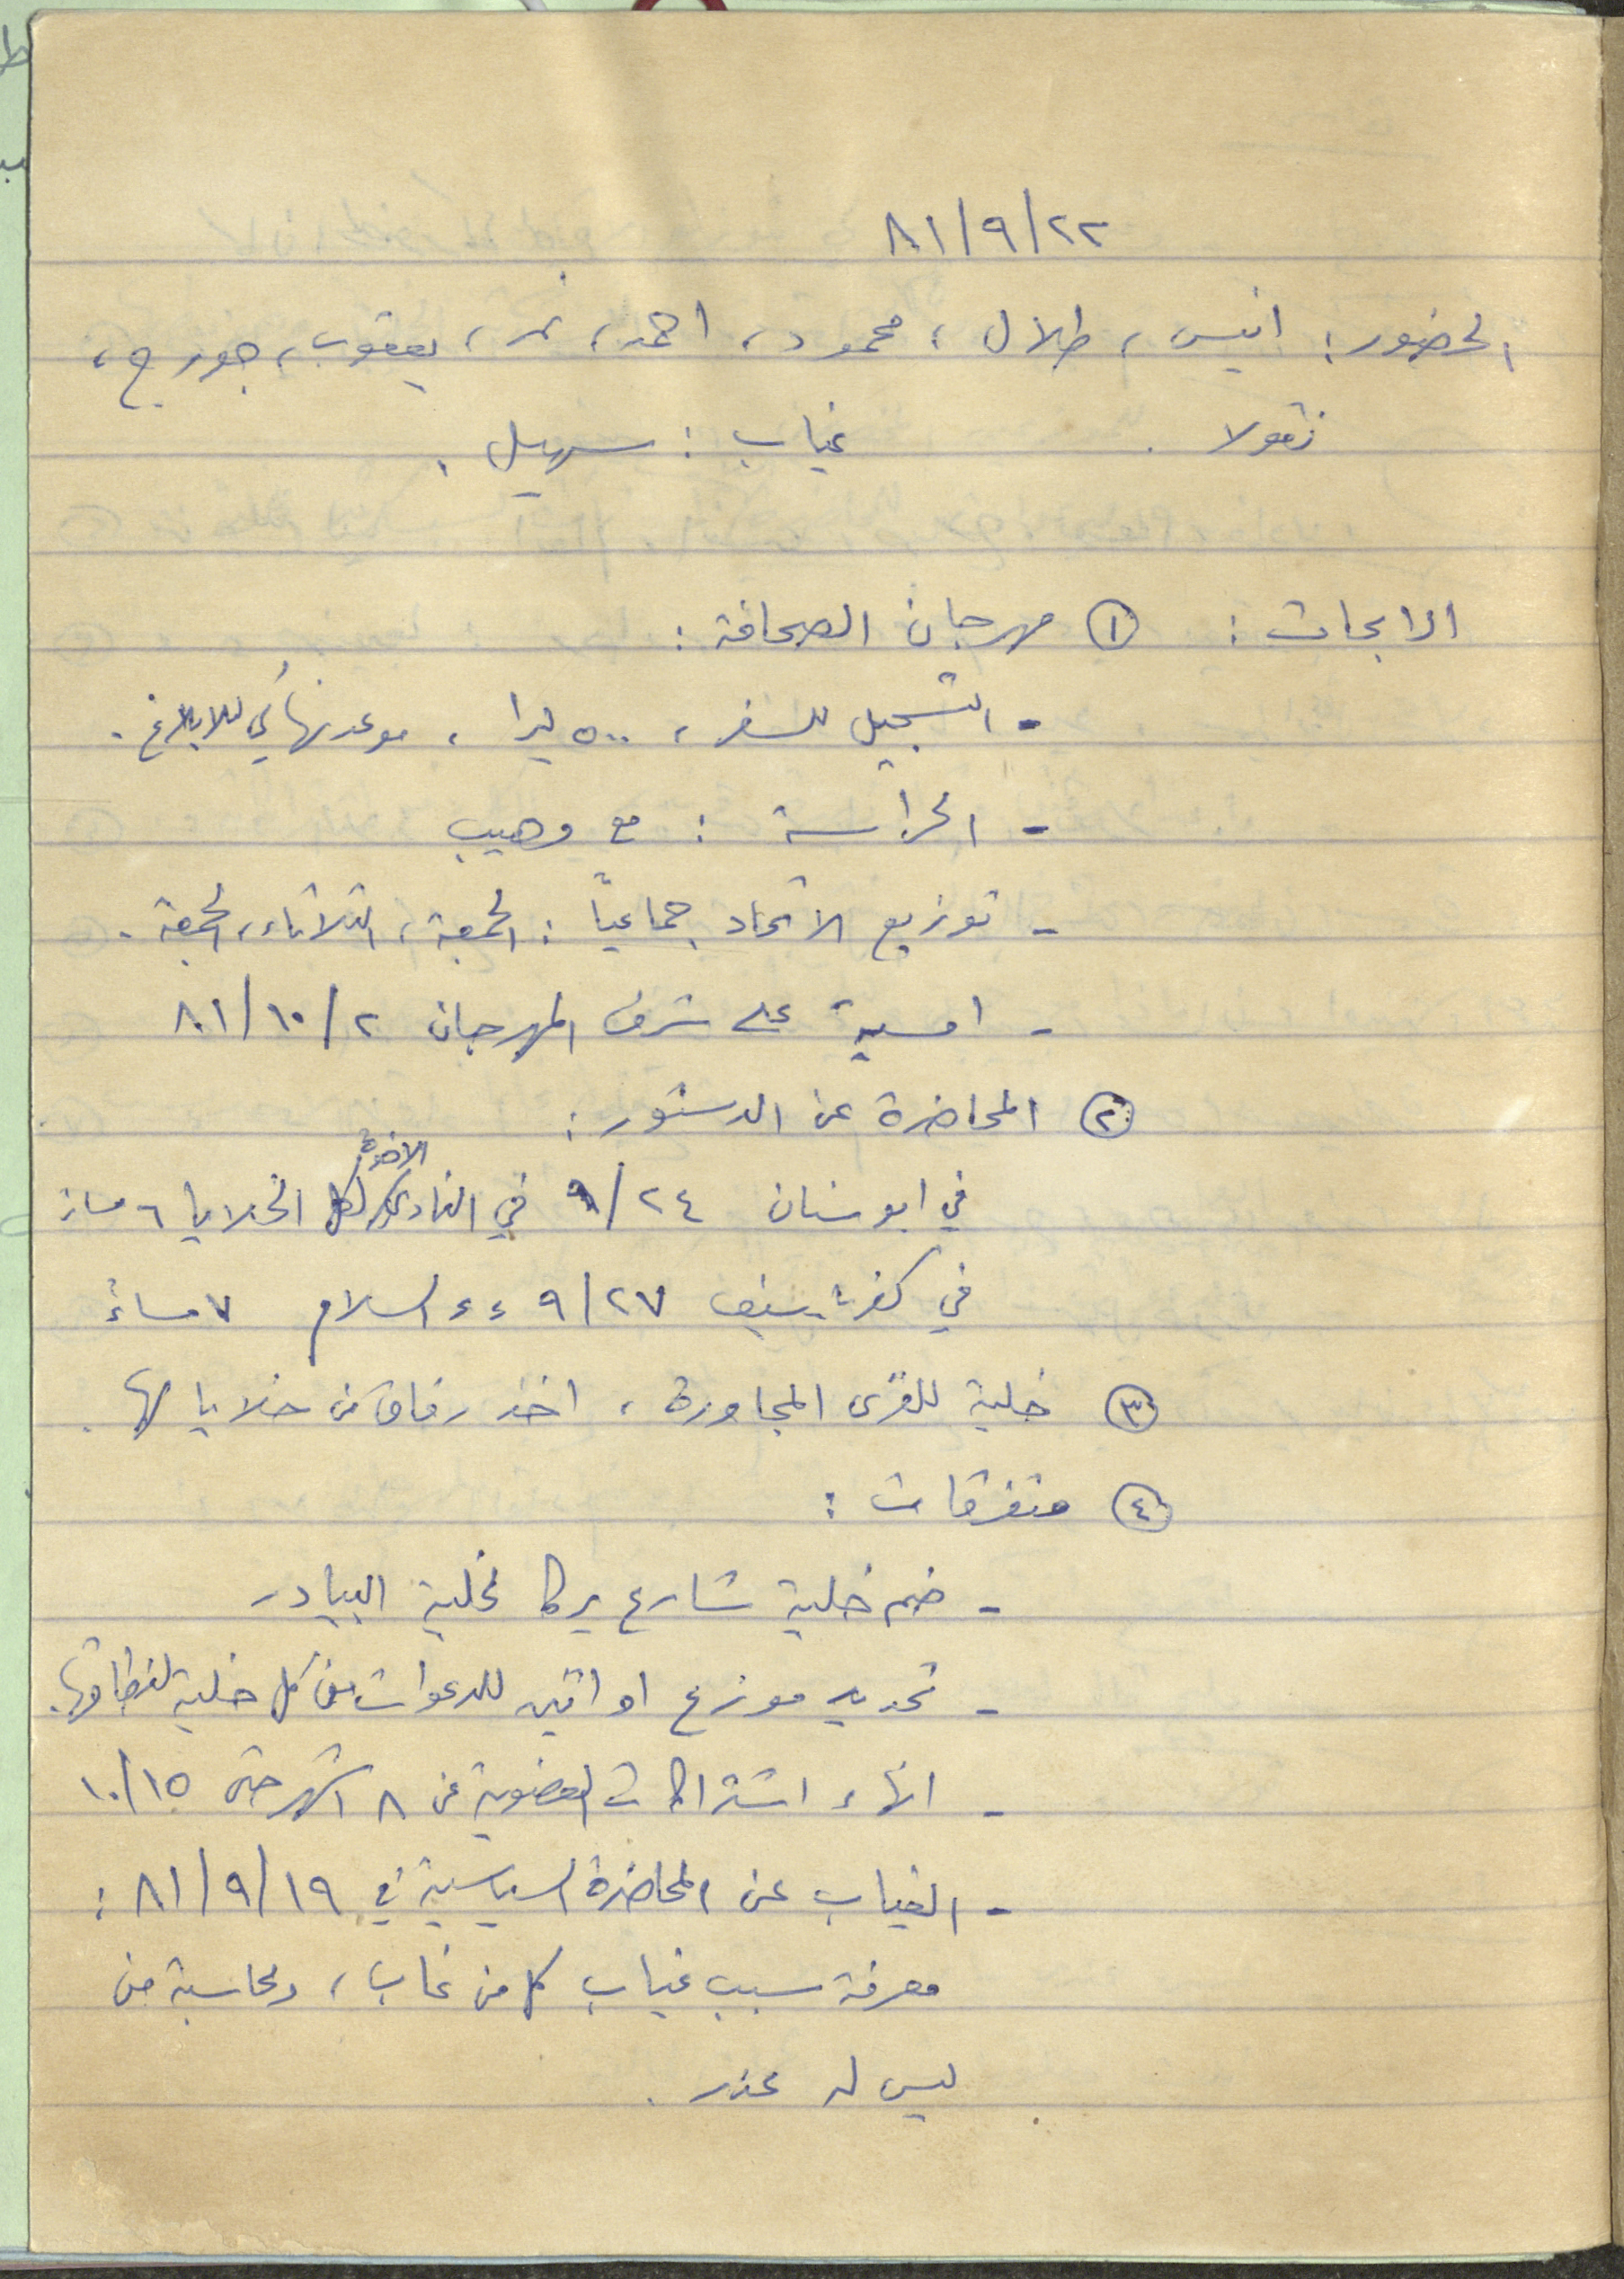 ٨١/٩/٢٢
الحضور: انيس، طلال، محمود، احمد، نمر، يعقوب، جورج،
نقولا. غياب: سهيل.
الابحاث: ① مهرجان الصحافة:
- التسجيل للسفر، ٥٠٠ ليرا، موعد نهائي للابلاغ.
- الحراسة: مع وهيب
- توزيع الاتحاد جماعياً: الجمعة، الثلاثاء، الجمعة.
- امسية على شرف المهرجان ٨١/١٠/٢
② المحاضرة عن الدستور:
الاخوة
في ابو سنان ٩/٢٤ في النادي لكل الخلايا ٦ مساءً
في كفر ياسيف ٩/٢٧ ءء السلام ٧ مساءً
③ خلية للقرى المجاورة، اخذ رفاق من خلايا لها.
④ متفرقات:
- ضم خلية شارع يركا لخلية البيادر
- تحديد موزع او اثنين للدعوات من كل خلية لنطاقها.
- انهاء اشتراكات العضوية عن ٨ اشهر حتى ١٠/١٥
- الغياب عن المحاضرة السياسية في ٨١/٩/١٩:
معرفة سبب غياب كل من غاب، ومحاسبة من
ليس له عذر.